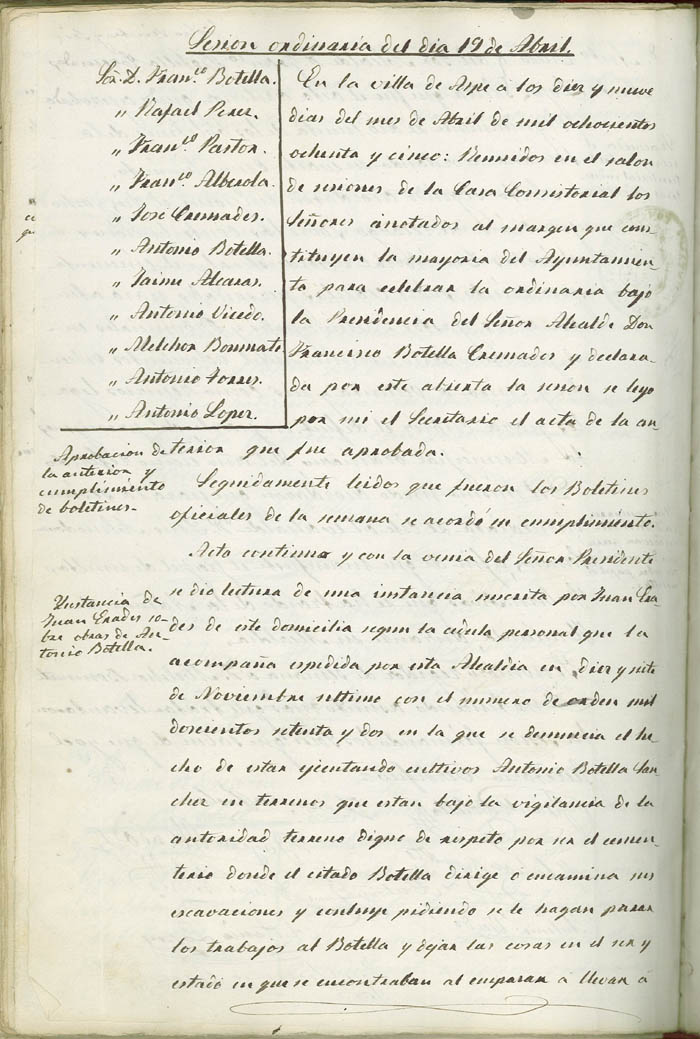 Sesion ordinaria del dia 19 de Abril.
Sr. D. Fran.co Botella.
" Rafael Perez.
" Fran.co Pastor.
" Fran.co Alberola.
" José Cremades.
" Antonio Botella.
" Jaime Alcaras.
" Antonio Vicedo.
" Melchor Bonmati.
" Antonio Torres.
" Antonio Lopez.
En la villa de Aspe á los diez y nueve
dias del mes de Abril de mil ochocientos
ochenta y cinco: Reunidos en el salon
de sesiones de la Casa Consistorial los
Señores anotados al margen que cons-
tituyen la mayoria del Ayuntamien-
to para celebrar la ordinaria bajo
la Presidencia del Señor Alcalde Don
Francisco Botella Cremades y declara-
da por este abierta la sesion se leyo
por mi el Secretario el acta de la an-
terior que fue aprobada.
Aprobacion de
la anterior y
cumplimiento
de boletines.
Seguidamente leidos que fueron los Boletines
oficiales de la semana se acordó su cumplimiento.
Acto continuo y con la venia del Señor Presidente
Instancia de
Juan Erades so-
bre obras de An-
tonio Botella.
se dio lectura de una instancia suscrita por Juan Era-
des de este domicilio segun la cedula personal que la
acompaña espedida por esta Alcaldia en diez y siete
de Noviembre ultimo con el numero de orden mil
doscientos setenta y dos en la que se denuncia el he-
cho de estar ejecutando cultivos Antonio Botella San-
chez en terrenos que estan bajo la vigilancia de la
autoridad terreno digno de respeto por ser el cemen-
terio donde el citado Botella dirige ó encamina sus
escavaciones y concluye pidiendo se le hagan parar
los trabajos al Botella y dejar las cosas en el ser y
estado en que se encontraban al empezar á llevar á